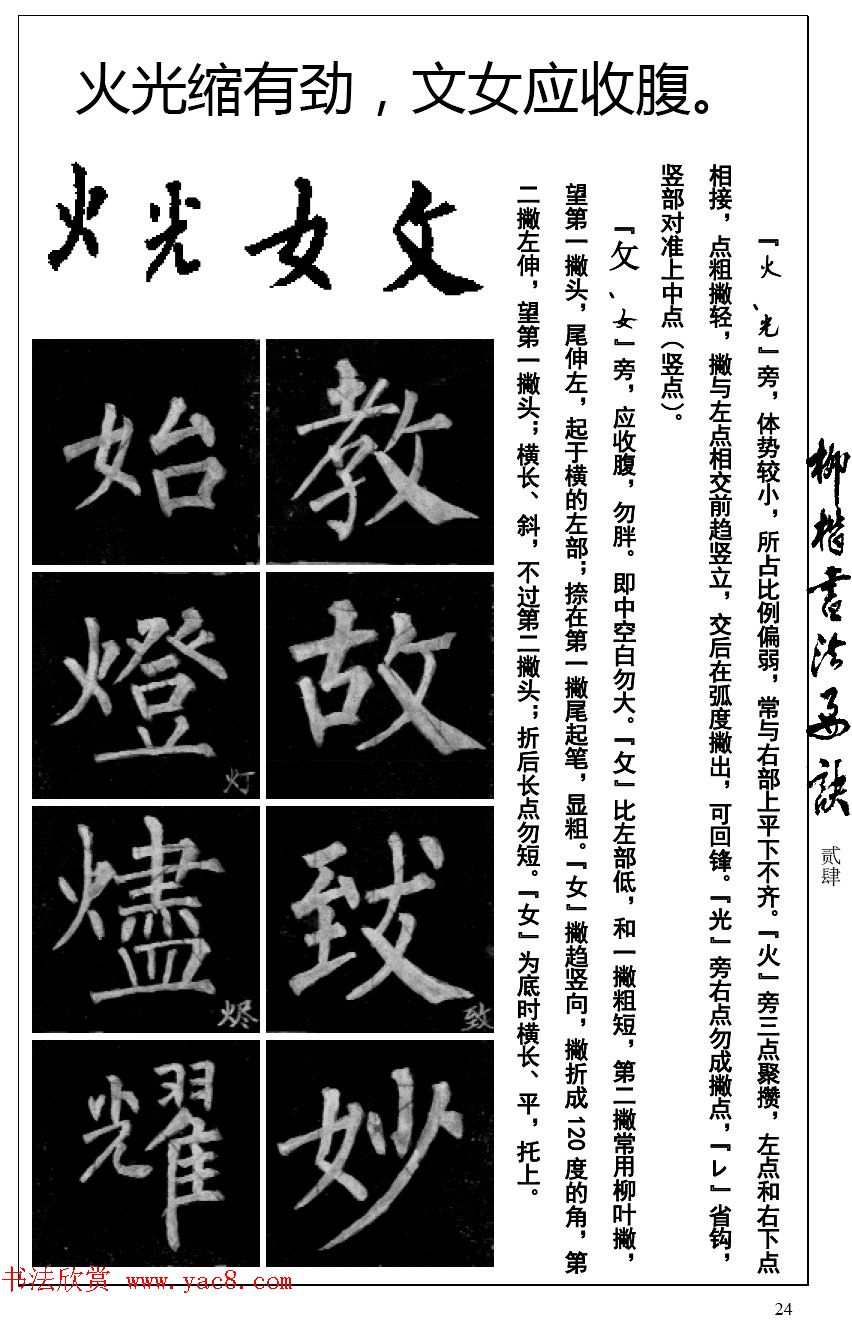 火光缩有劲，文女应收腹。
火 光 女 攵
『火、光』旁，体势较小，所占比例偏弱，常与右部上平下不齐。『火』旁三点聚攒，左点和右下点
相接，点粗撇轻，撇与左点相交前趋竖立，交后在弧度撇出，可回锋。『光』旁右点勿成撇点，『㇄』省钩，
竖部对准上中点（竖点）。
『攵、女』旁，应收腹，勿胖。即中空白勿大。『攵』比左部低，和一撇粗短，第二撇常用柳叶撇，
望第一撇头，尾伸左，起于横的左部；捺在第一撇尾起笔，显粗。『女』撇趋竖向，撇折成120度的角，第
二撇左伸，望第一撇头；横长、斜，不过第二撇头；折后长点勿短。『女』为底时横长、平，托上。
始 教
燈 灯 故
燼 烬 致 致
耀 妙
柳楷书法要诀
贰肆
书法欣赏 www.yac8.com
24